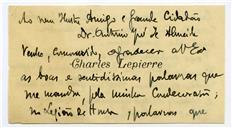 Ao meu Ilustre Amigo e Grande Cidadão
Dr. António José de Almeida
Venho, comovido, agradecer a V. Exa
Charles Lepierre
as boas e sentidissimas palavras que
me mandou, pela minha condecoração
na Legião de Honra, palavras que